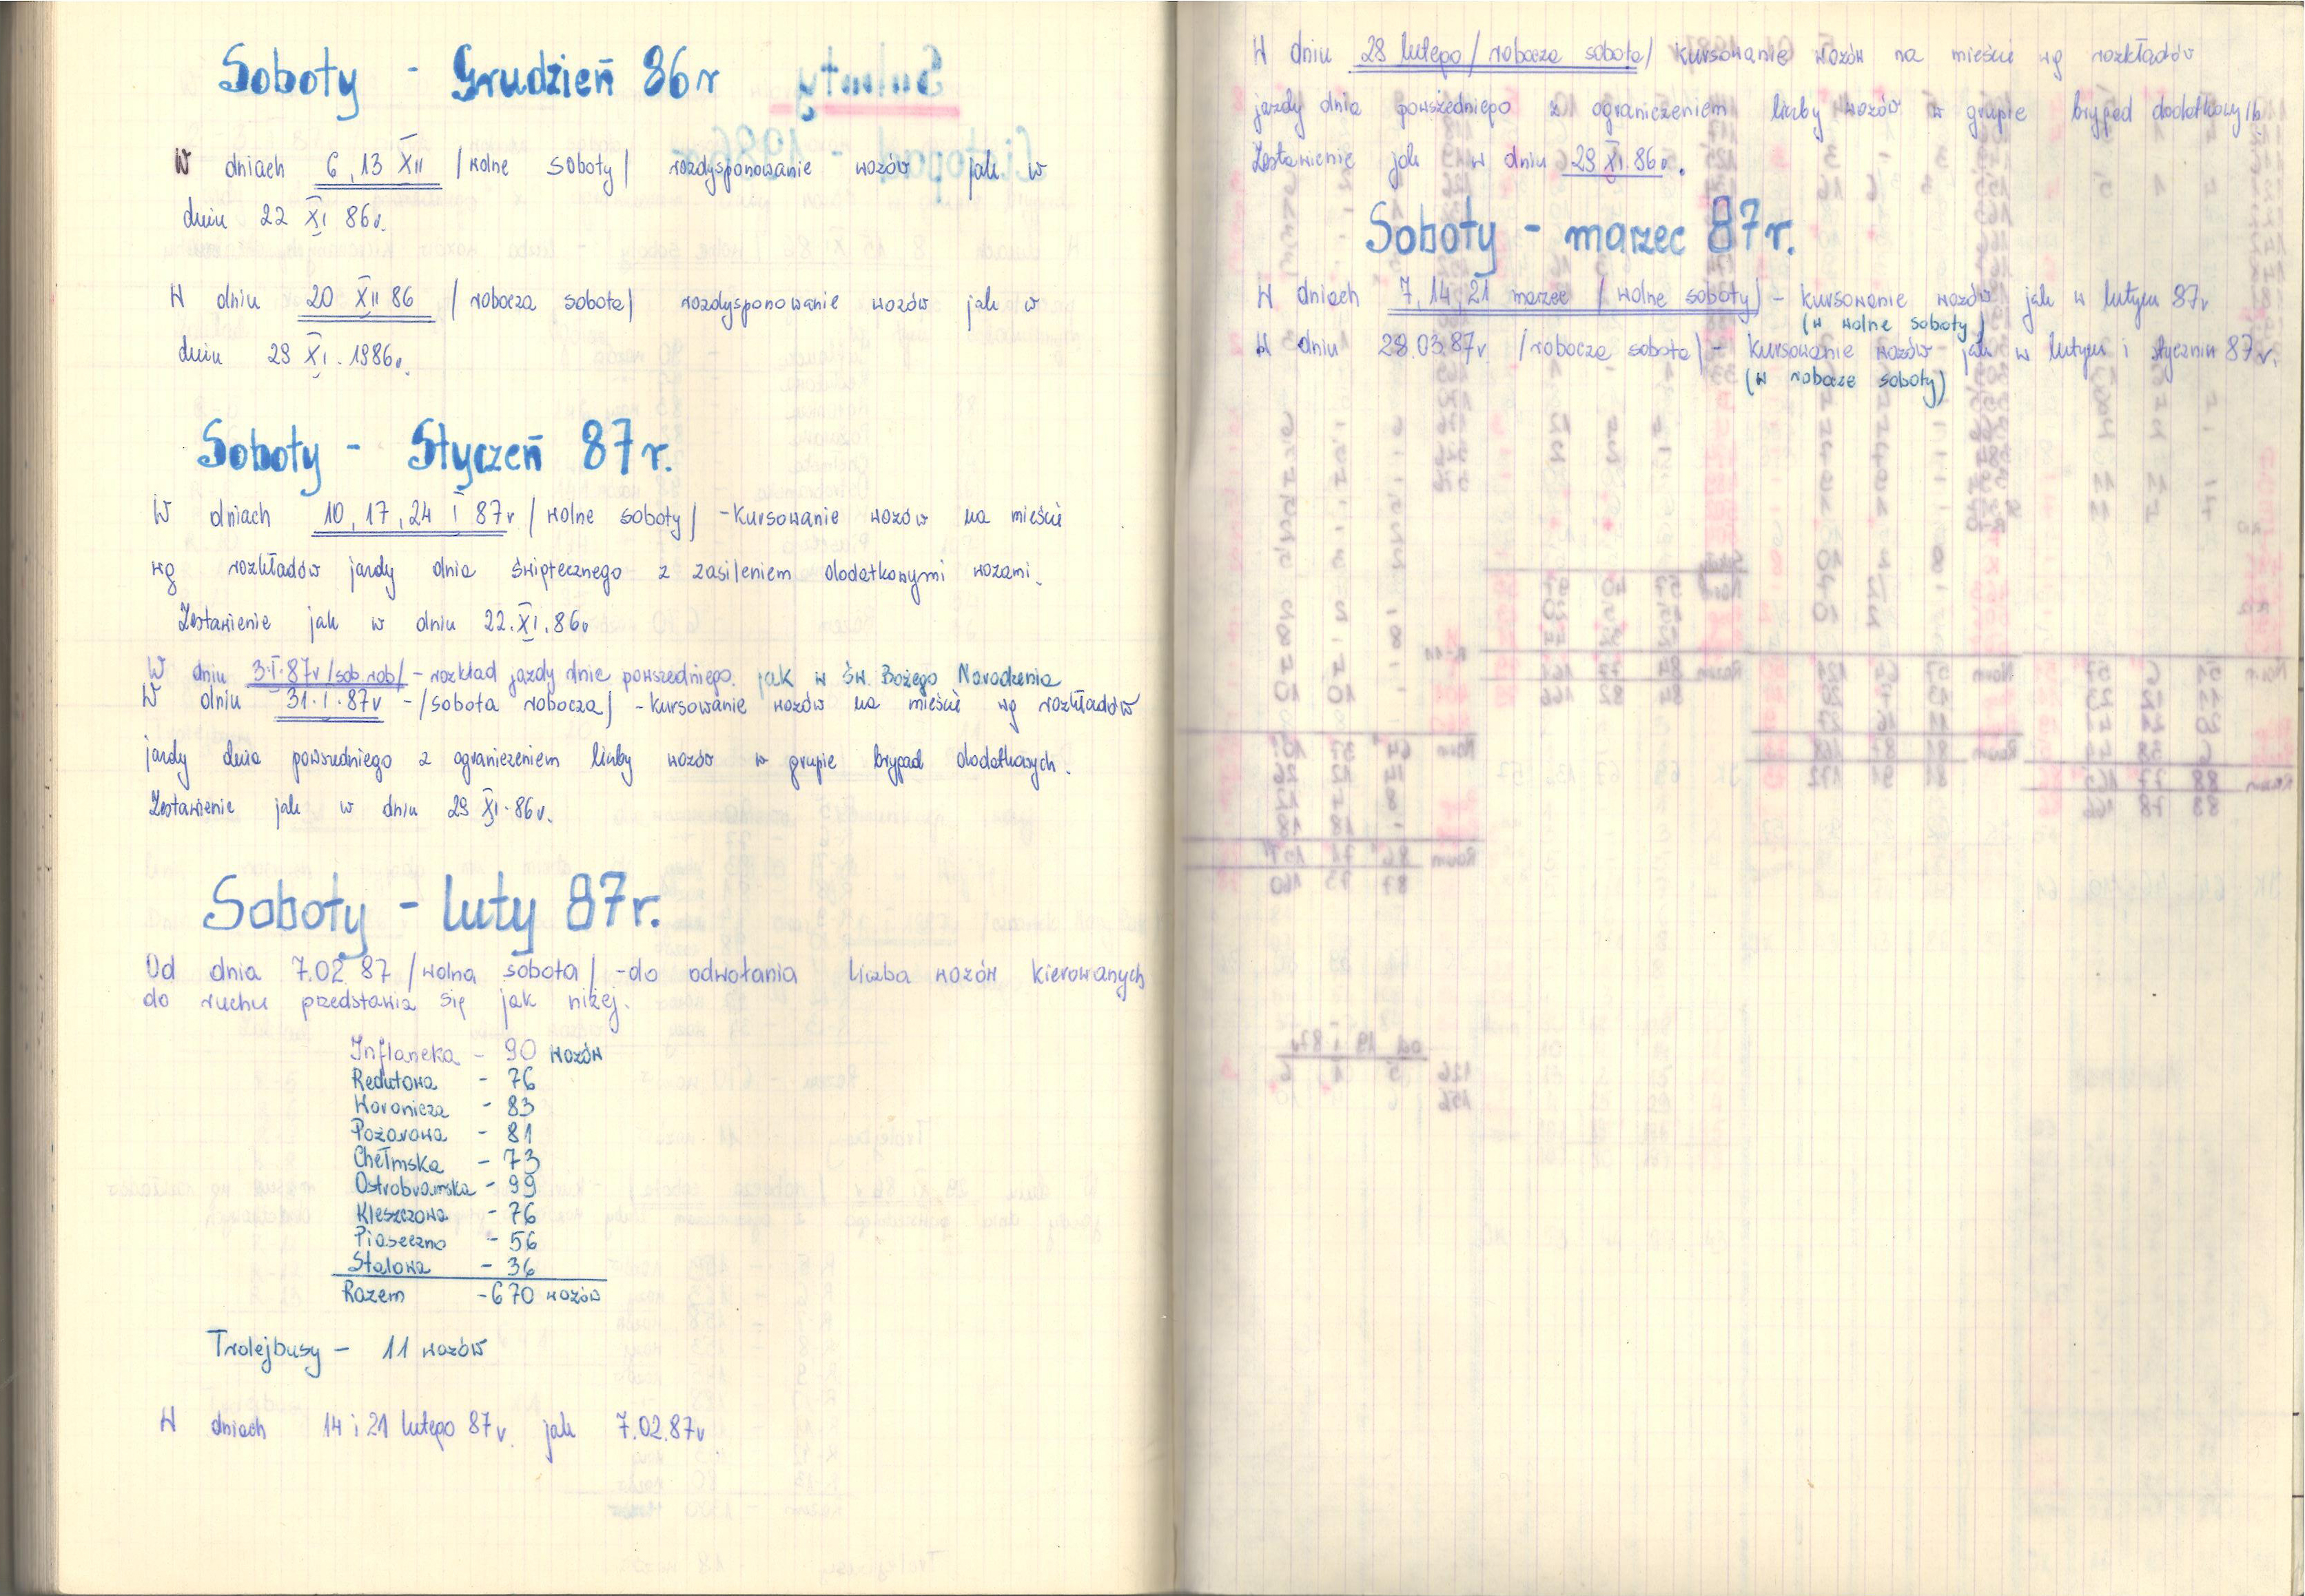 Soboty - Grudzień 86r
W dniach 6, 13 XII /wolne soboty/ rozdysponowanie wozów jak w
dniu 22 XI 86r.
W dniu 20 XII 86 /robocza sobota/ rozdysponowanie wozów jak w
dniu 29 XI. 1986r.
Soboty - Styczeń 87r.
W dniach 10, 17, 24 I 87r /wolne soboty/ - kursowanie wozów na mieście
wg rozkładów jazdy dnia świątecznego z zasileniem dodatkowymi wozami.
Zestawienie jak w dniu 22.XI.86r
W dniu 3.I.87r /sob.rob/ - rozkład jazdy dnia powszedniego. jak w Św. Bożego Narodzenia
W dniu 31.I.87r - /sobota robocza/ - kursowanie wozów na mieście wg rozkładów
jazdy dnia powszedniego z ograniczeniem liczby wozów w grupie brygad dodatkowych.
Zestawienie jak w dniu 29 XI.86r.
Soboty - luty 87r.
Od dnia 7.02 87 /wolna sobota/ - do odwołania liczba wozów kierowanych
do ruchu przedstawia się jak niżej.
Inflancka - 90 wozów
Redutowa - 76
Woronicza - 83
Pożarowa - 81
Chełmska - 73
Ostrobramska - 99
Kleszczowa - 76
Piaseczno - 56
Stalowa - 36
Razem - 670 wozów
Trolejbusy - 11 wozów
W dniach 14 i 21 lutego 87r. jak 7.02.87r
W dniu 28 lutego /robocza sobota/ kursowanie wozów na mieście wg rozkładów
jazdy dnia powszedniego z ograniczeniem liczby wozów w grupie brygad dodatkowych.
Zestawienie jak w dniu 29 XI.86r.
Soboty - marzec 87r.
W dniach 7, 14, 21 marzec /wolne soboty/ - kursowanie wozów jak w lutym 87r
(w wolne soboty)
W dniu 28.03.87r /robocza sobota/ - kursowanie wozów jak w lutym i styczniu 87r.
(w robocze soboty)